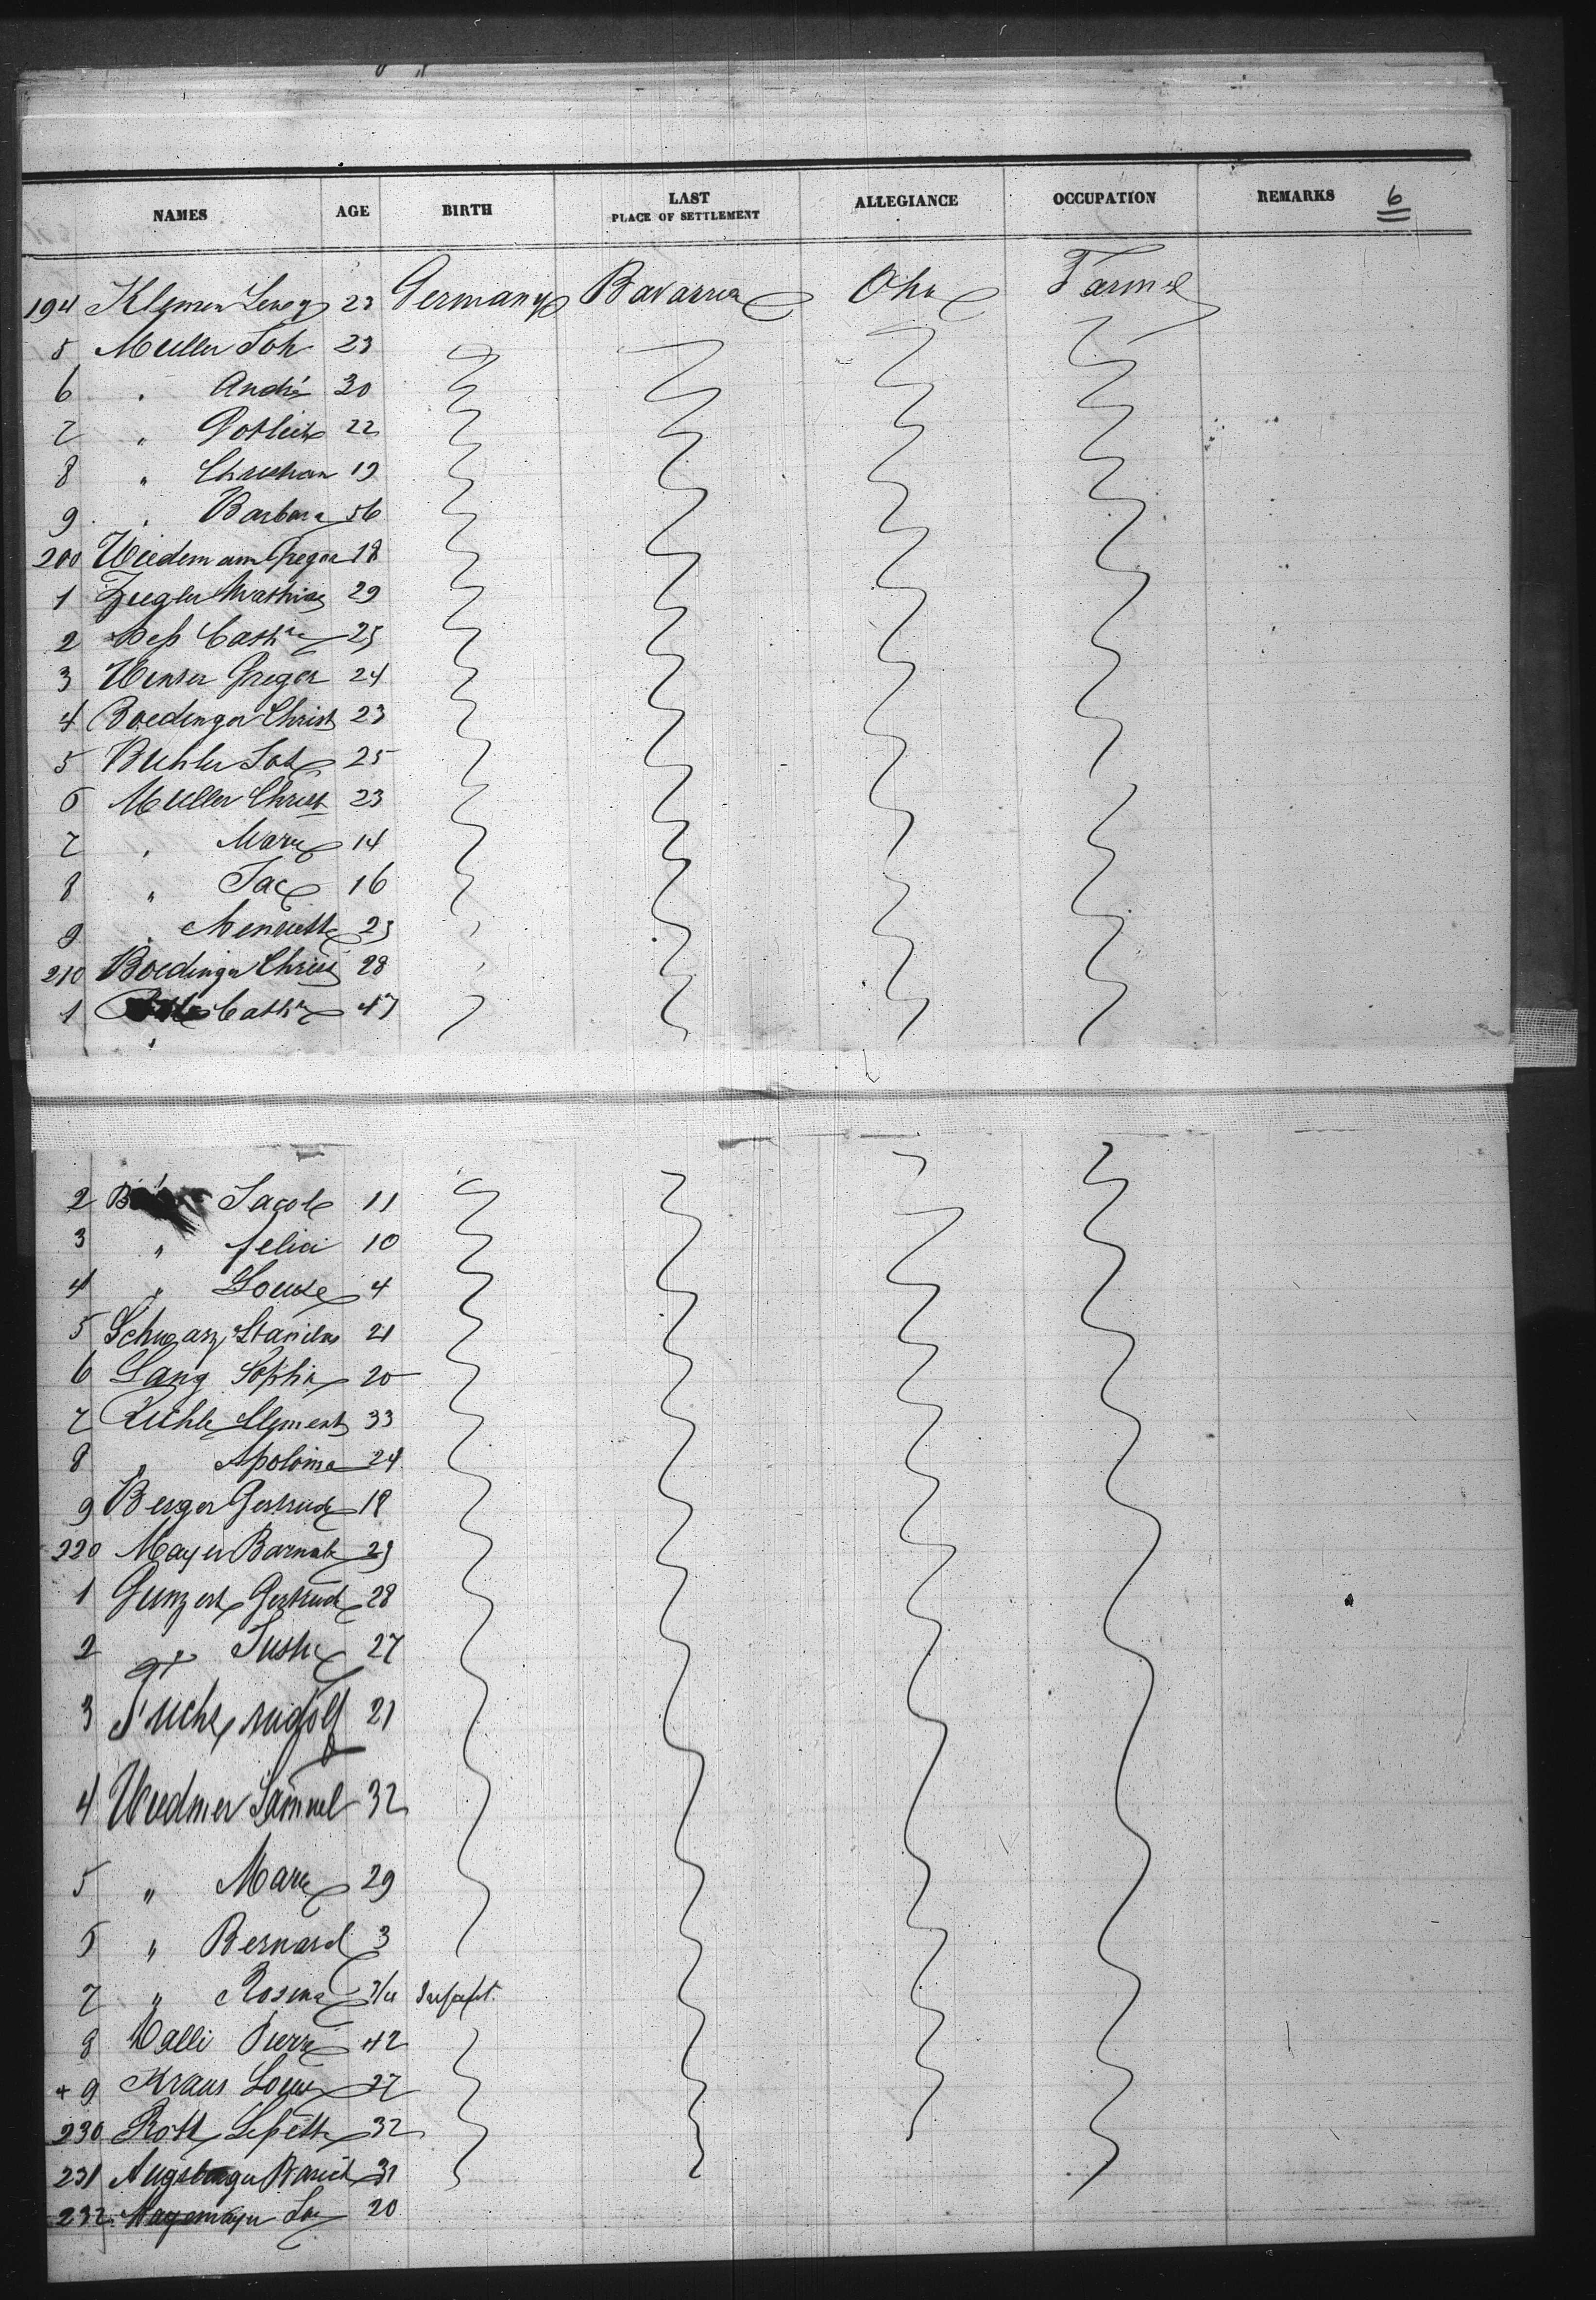 NAMES AGE BIRTH LAST PLACE OF SETTLEMENT ALLEGIANCE OCCUPATION REMARKS 6
194 Klemen 23 Germany Bavarria Ohio Farmer
5 Muller Joh 23
6 " André 30
7 " Gotlieb 22
8 " Christian 19
9 " Barbara 56
200 Wiedemann Gregor 18
1 Ziegler Mathias 29
2 Hess Cathne 25
3 Gregor 24
4 Boedinger Christ 23
5 Buhler Joh 25
6 Muller Christ 23
7 " Marie 14
8 " Jac 16
9 " Henriette 23
210 Boedinger Christ 28
1 Cathne 47
2 Jacob 11
3 " felici 10
4 " Louise 4
5 Schwarz Stanilas 21
6 Lang Sophie 20
7 Clement 33
8 " Apolonia 24
9 Berger Gertrude 18
220 Mayer Barnabe 23
1 Gunzert Gertrud 28
2 27
3 Fuchs rudolf 21
4 Wiedmer Samuel 32
5 " Marie 29
6 " Bernard 3
7 " Rosina Infant.
8 Pierre 42
+ 9 Kraus Louis 27
230 Roth 32
231 Augsburger 31
232 20